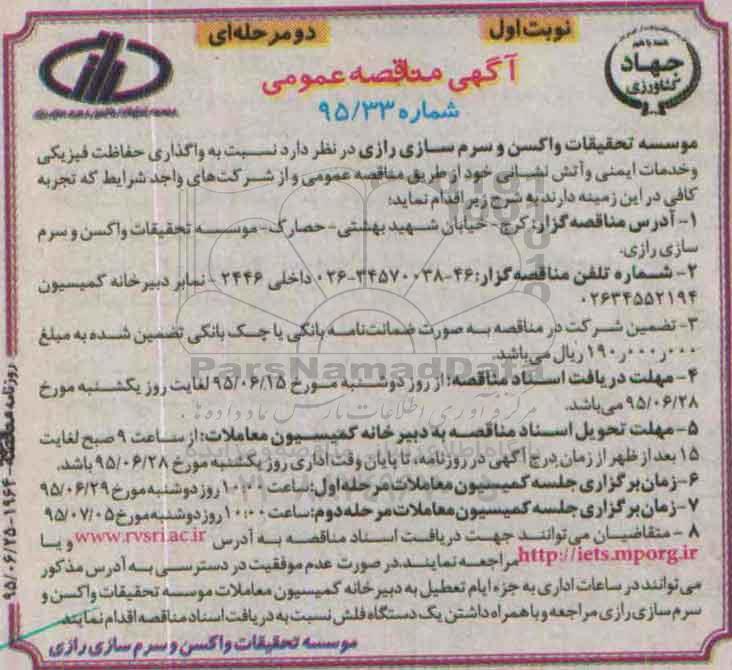 نوبت اول
دو مرحله‌ای
جهاد
کشاورزی
آگهی مناقصه عمومی
شماره ۹۵/۳۳
موسسه تحقیقات واکسن و سرم سازی رازی در نظر دارد نسبت به واگذاری حفاظت فیزیکی
وخدمات ایمنی وآتش نشانی خود از طریق مناقصه عمومی و از شرکت‌های واجد شرایط که تجربه
کافی در این زمینه دارند به شرح زیر اقدام نماید:
۱- آدرس مناقصه گزار: کرج- خیابان شهید بهشتی- حصارک- موسسه تحقیقات واکسن و سرم
سازی رازی.
۲- شماره تلفن مناقصه گزار: ۴۶-۳۴۵۷۰۰۳۸-۰۲۶ داخلی ۲۴۴۶ - نمابر دبیرخانه کمیسیون
۰۲۶۳۴۵۵۲۱۹۴
۳- تضمین شرکت در مناقصه به صورت ضمانت‌نامه بانکی یا چک بانکی تضمین شده به مبلغ
۱۹۰٫۰۰۰٫۰۰۰ ریال می‌باشد.
ParsNamadData
۴- مهلت دریافت اسناد مناقصه: از روز دوشنبه مورخ ۹۵/۰۶/۱۵ لغایت روز یکشنبه مورخ
۹۵/۰۶/۲۸ می‌باشد.
مرکز فرآوری اطلاعات پارس نماد داده ها
۵- مهلت تحویل اسناد مناقصه به دبیرخانه کمیسیون معاملات: از ساعت ۹ صبح لغایت
۱۵ بعد از ظهر از زمان درج آگهی در روزنامه، تا پایان وقت اداری روز یکشنبه مورخ ۹۵/۰۶/۲۸ باشد.
۶- زمان برگزاری جلسه کمیسیون معاملات در مرحله اول: ساعت ۱۰:۰۰ روز دوشنبه مورخ ۹۵/۰۶/۲۹
۷- زمان برگزاری جلسه کمیسیون معاملات مرحله دوم: ساعت ۱۰:۰۰ روز دوشنبه مورخ ۹۵/۰۷/۰۵
۸- متقاضیان می‌توانند جهت دریافت اسناد مناقصه به آدرس www.rvsri.ac.ir و یا
http://iets.mporg.ir مراجعه نمایند. در صورت عدم موفقیت در دسترسی به آدرس مذکور
می‌توانند در ساعات اداری به جزء ایام تعطیل به دبیرخانه کمیسیون معاملات موسسه تحقیقات واکسن و
سرم سازی رازی مراجعه و با همراه داشتن یک دستگاه فلش نسبت به دریافت اسناد مناقصه اقدام نمایند.
موسسه تحقیقات واکسن و سرم سازی رازی
روزنامه مناقصه - ۱۹۶۴ - ۹۵/۰۶/۲۵